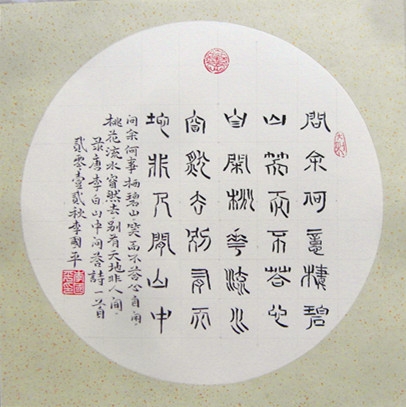 問余何意棲碧
山笑而不答心
自閑桃華流水
窅然去別有天
地非人間山中
问余何事栖碧山笑而不答心自闲
桃花流水窅然去别有天地非人间
录唐李白山中问答詩一首
贰零壹贰秋李國平